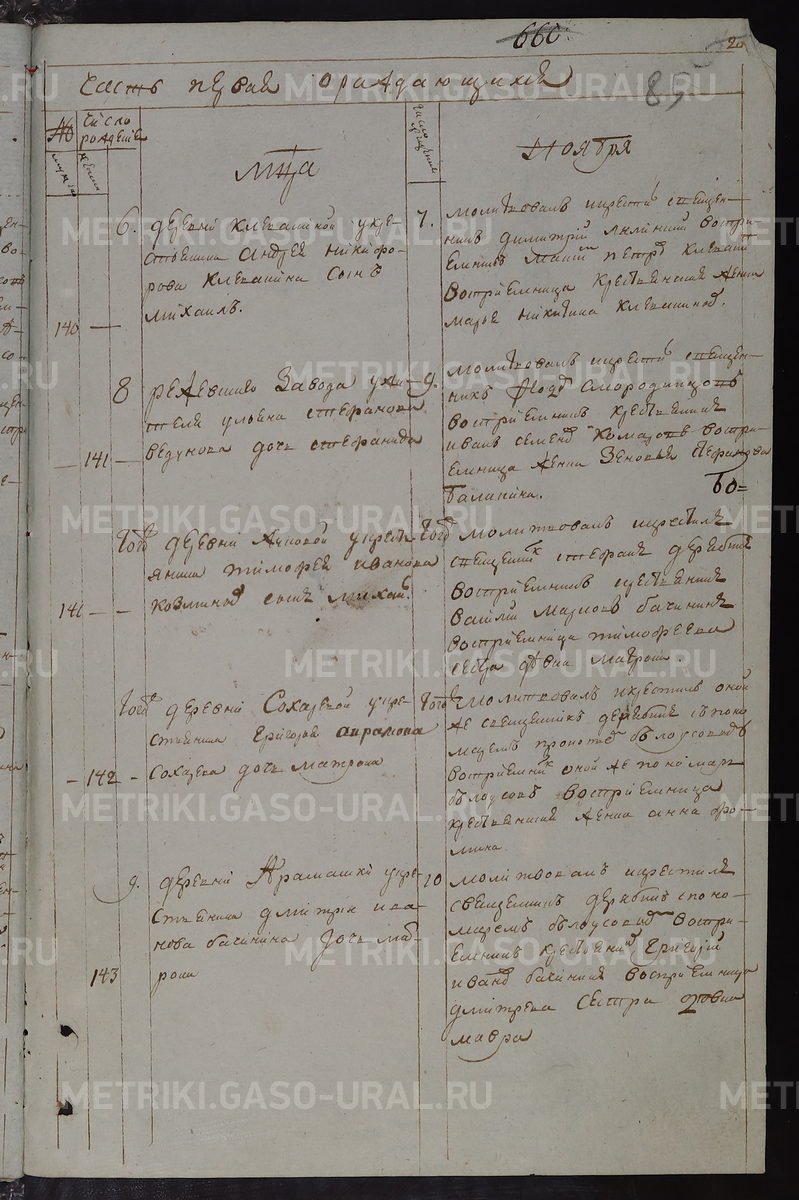 660
20
85
Часть первая о раждающихся
№
число рождение
мужска
женска
число крещения
мца
Ноября
6.
деревни Клевакиной у кре-
стьянина Андрея Никифо-
рова Клевакина сынъ
михаилъ.
140 —
7.
молитвовалъ и крестилъ священ-
никъ Димитрий воспри-
емникъ Петръ
восприемница крестьянская жена
марья Никитина Клевакиных.
8
режевского Завода у жи-
теля улиана стефанова
Ведунова дочь стефанида
— 141 —
9.
молитвовалъ и крестилъ священ-
никъ Смородинцовъ
восприемникъ крестьянинъ
иванъ семенов Комаровъ воспри-
емница жена Зеновья Ефимова
Балакина.
Бо=
Тогож
деревни у кресть-
янина тимофея иванова
козминых сынъ михаил.
141 — —
Тогож
молитвовалъ и крестилъ
священник стефанъ Дерябинъ
восприемникъ крестьянинъ
Василий Марковъ бачининъ
восприемница тимофеева
сестра девка матрона.
Тогож
деревни Сохаревой у кре-
стьянина Григорья аврамова
Сохарева дочь матрона
— 142 —
Тогож
молитвовалъ и крестилъ оной
же священникъ дерябинъ съ поно
маремъ белоусовымъ
восприемник оной же пономарь
белоусовъ восприемница
крестьянская жена анна фо-
мина.
9.
деревни Арамашки у кре-
стьянина дмитрия ива-
нова бачинина дочь мат-
рона
143
10
молитвовалъ и крестилъ
священникъ дерябинъ с поно-
маремъ белоусовым воспри-
емникъ крестьянин Григорий
иванов бачининъ восприемница
дмитрева сестра девка
мавра
METRIKI.GASO-URAL.RU